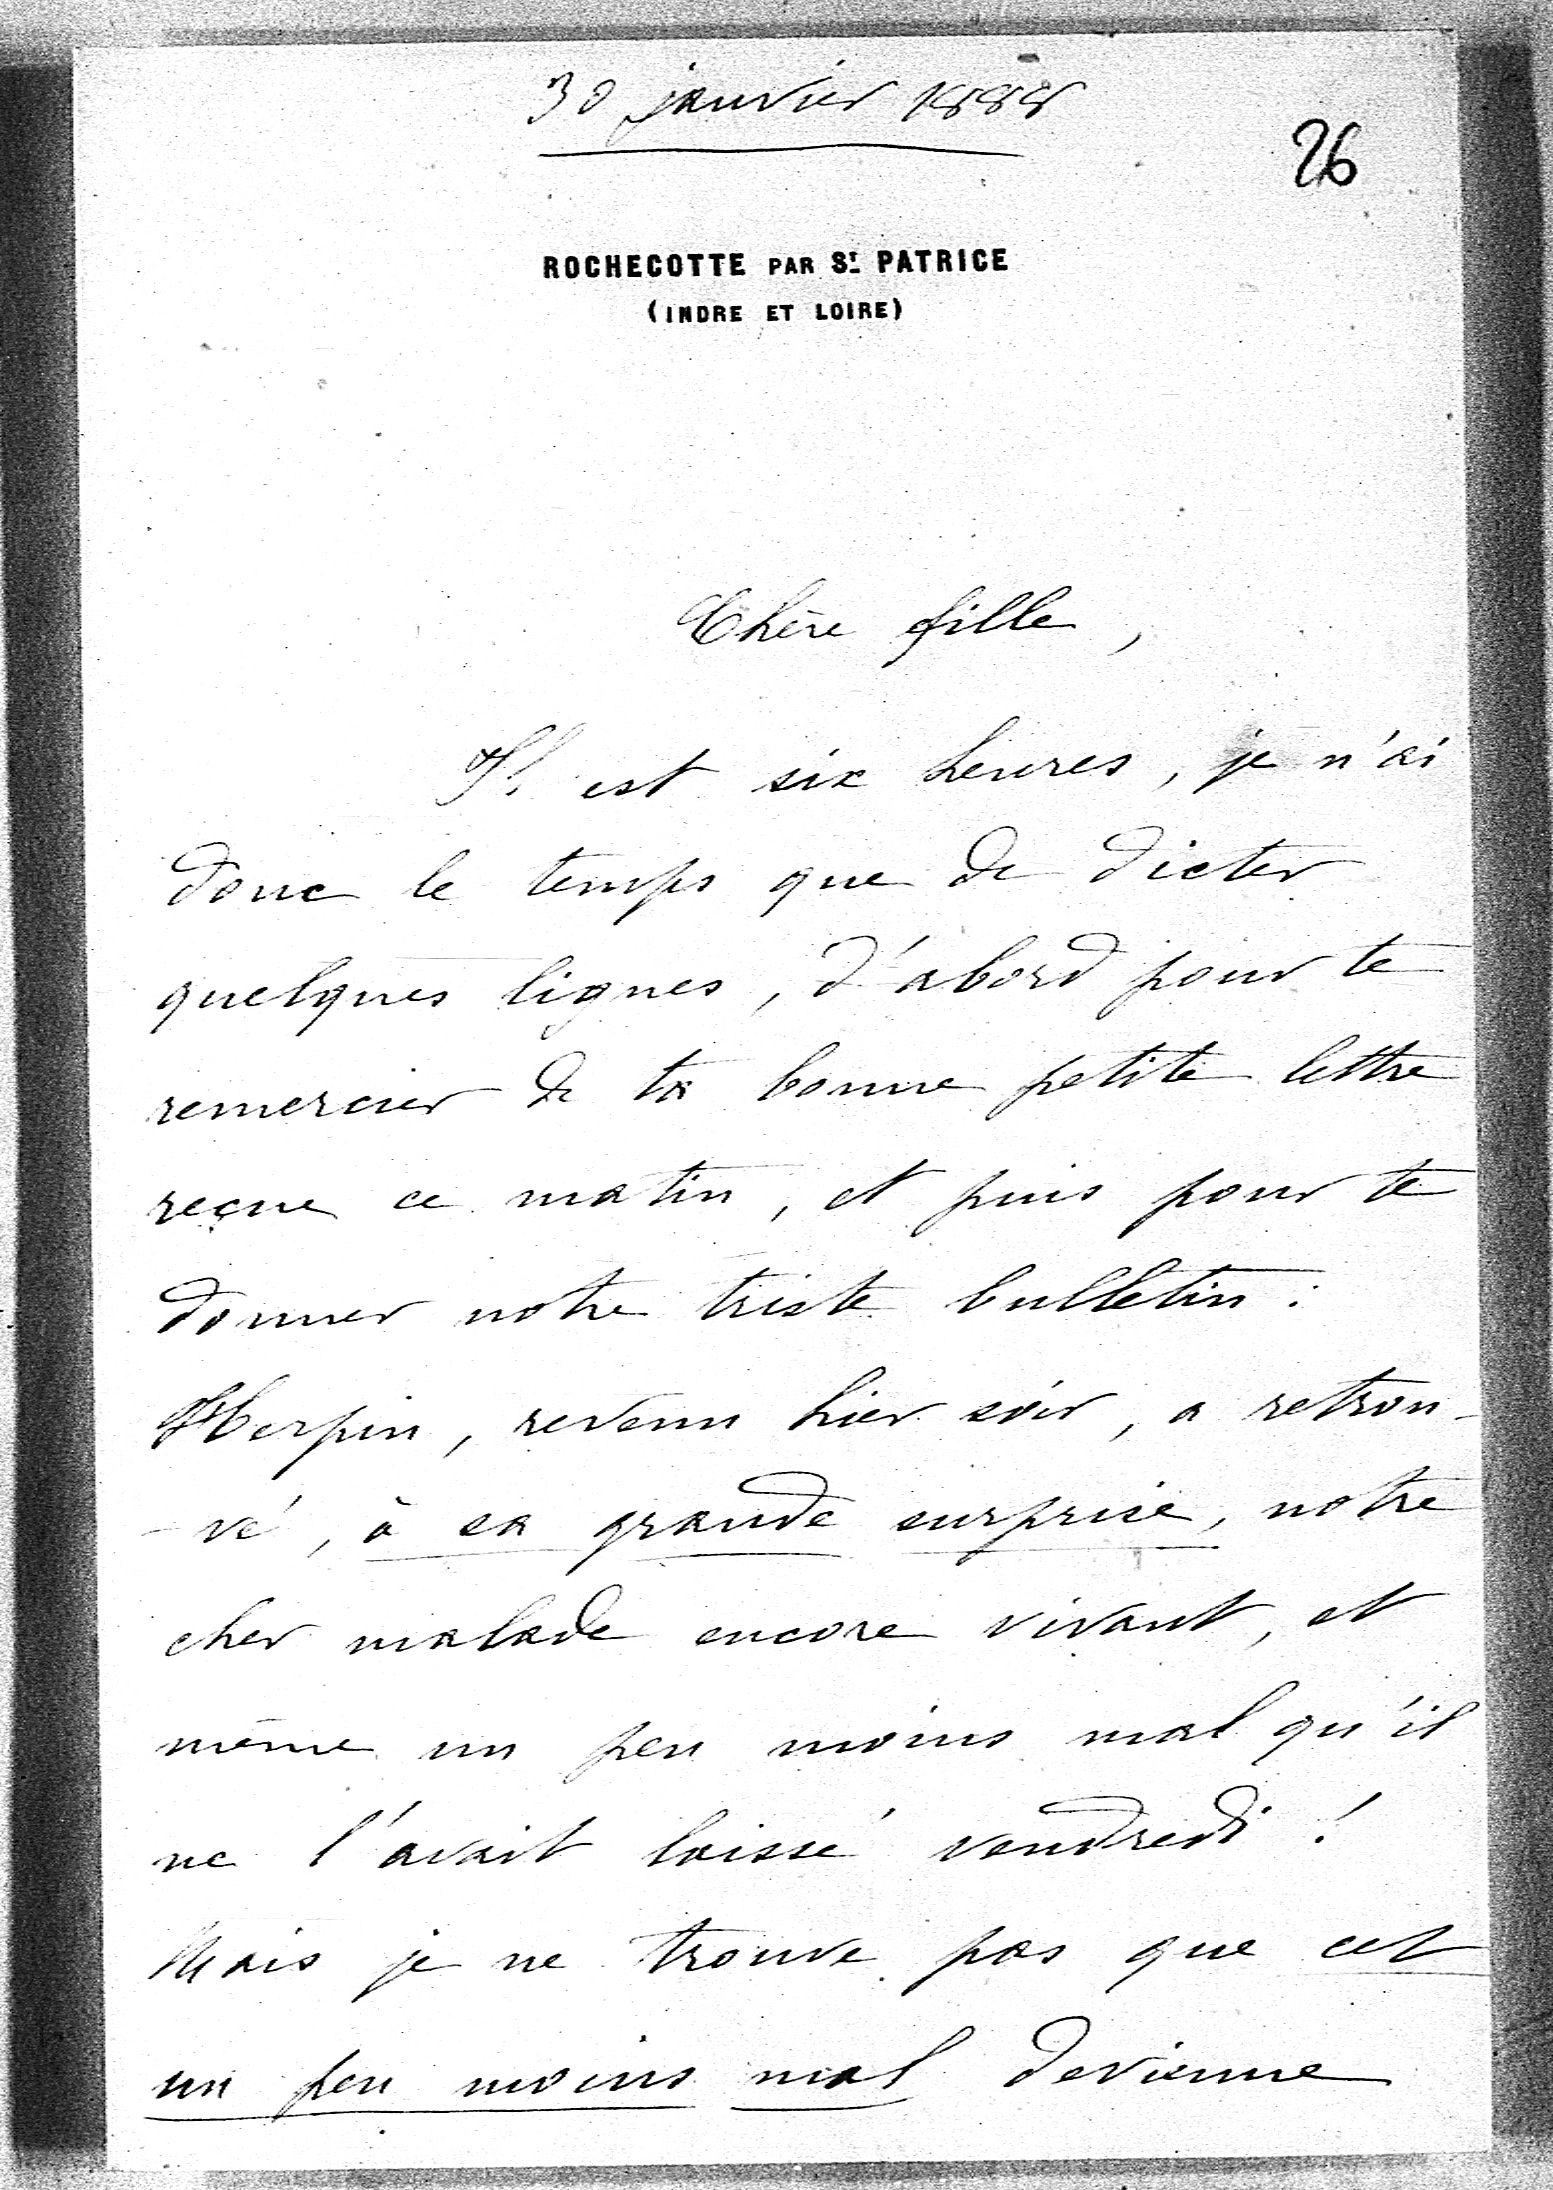 30 janvier 1888
26
ROCHECOTTE PAR ST PATRICE
(INDRE ET LOIRE)
Chère fille,
Il est six heures, je n'ai
donc le temps que de dicter
quelques lignes, d'abord pour te
remercier de ta bonne petite lettre
reçue ce matin, et puis pour te
donner notre triste bulletin :
Herpin, revenu hier soir, a retrou-
-vé, à sa grande surprise, notre
cher malade encore vivant, et
même un peu moins mal qu'il
ne l'avait laissé vendredi !
Mais je ne trouve pas que cet
un peu moins mal devienne